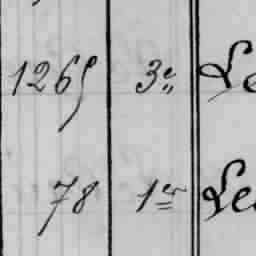 1265 3e Le
78 1er Le